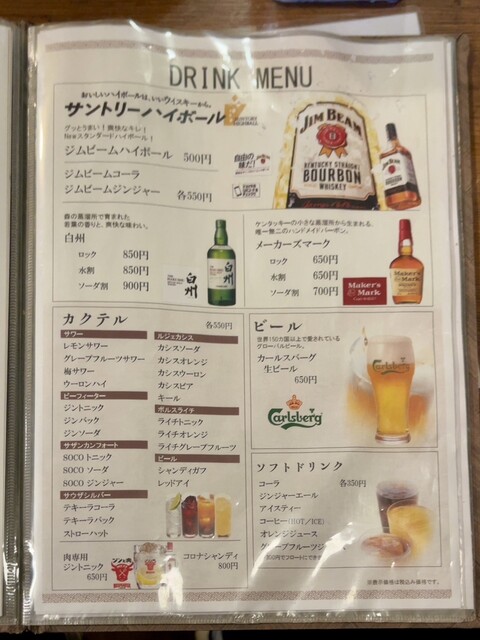 DRINK MENU
おいしいハイボールは、いいウイスキーから。
サントリーハイボール
グッとうまい！爽快なキレ！
Newスタンダードハイボール！
ジムビームハイボール 500円
ジムビームコーラ
ジムビームジンジャー 各550円
自由の味だ！
JIM BEAM
KENTUCKY STRAIGHT
BOURBON
WHISKEY
森の蒸溜所で育まれた
若葉の香りと、爽快な味わい。
白州
ロック 850円
水割 850円
ソーダ割 900円
白州
ケンタッキーの小さな蒸溜所から生まれる
唯一無二のハンドメイドバーボン。
メーカーズマーク
ロック 650円
水割 650円
ソーダ割 700円
Maker's Mark
Maker's Mark
カクテル 各550円
サワー
レモンサワー
グレープフルーツサワー
梅サワー
ウーロンハイ
ビーフィーター
ジントニック
ジンバック
ジンソーダ
サザンカンフォート
SOCO トニック
SOCO ソーダ
SOCO ジンジャー
サウザシルバー
テキーラコーラ
テキーラバック
ストローハット
ルジェカシス
カシスソーダ
カシスオレンジ
カシスウーロン
カシスビア
キール
ボルスライチ
ライチトニック
ライチオレンジ
ライチグレープフルーツ
ビール
シャンディガフ
レッドアイ
肉専用
ジントニック
650円
コロナシャンディ
800円
ビール
世界150カ国以上で愛されている
グローバルビール。
カールスバーグ
生ビール
650円
Carlsberg
Carlsberg
ソフトドリンク
コーラ 各350円
ジンジャーエール
アイスティー
コーヒー(HOT/ICE)
オレンジジュース
グレープフルーツジュース
※表示価格は税込み価格です。